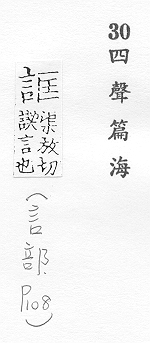 30四聲篇海
誆 柒放切
言也
(言部 P108)